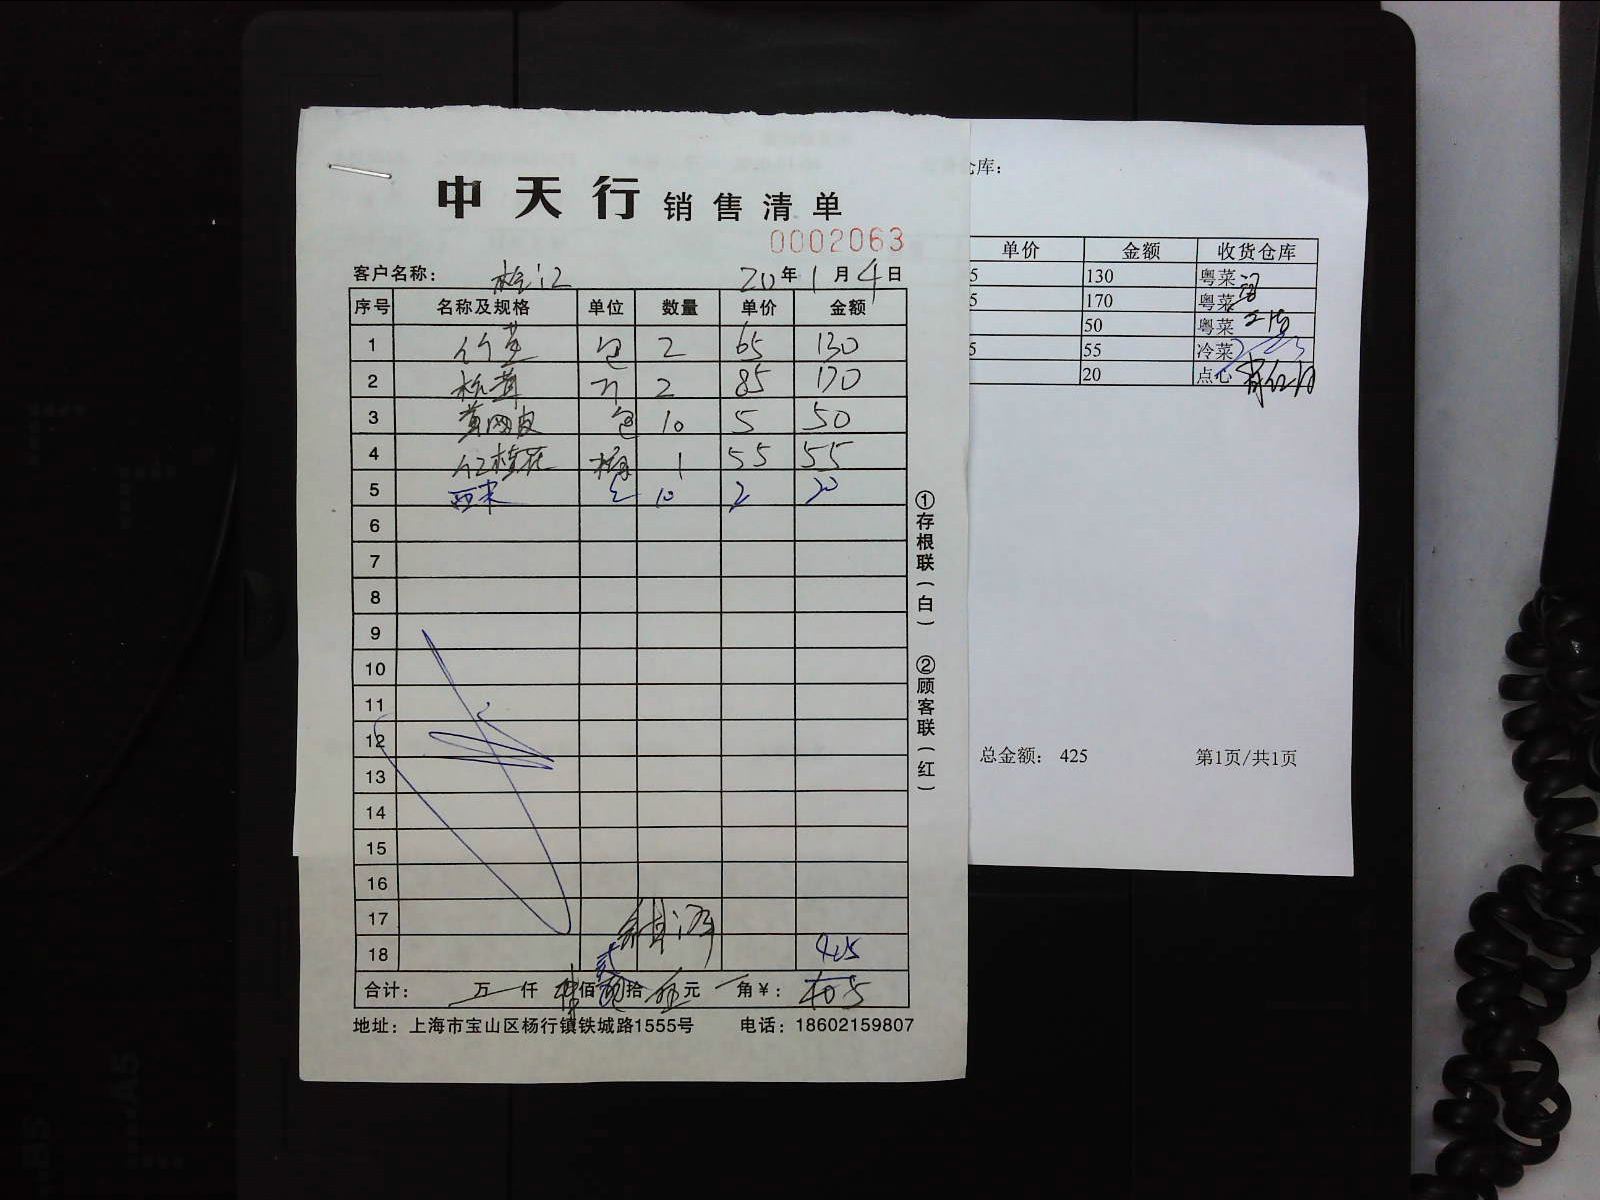 中天行 销售清单
0002063
客户名称： 松江 20年1月4日
序号 名称及规格 单位 数量 单价 金额
1 竹荪 包 2 65 130
2 松茸 2 85 170
3 黄网皮 包 10 5 50
4 1 55 55
5 西米 10 2 20
6
7
8
9
10
11
12
13
14
15
16
17
18 425
合计： 万 仟 佰 拾 伍元 角￥： 405
地址：上海市宝山区杨行镇铁城路1555号 电话：18602159807
①存根联（白） ②顾客联（红）
仓库：
单价 金额 收货仓库
5 130 粤菜
5 170 粤菜
50 粤菜
5 55 冷菜
20 点心
总金额： 425 第1页/共1页